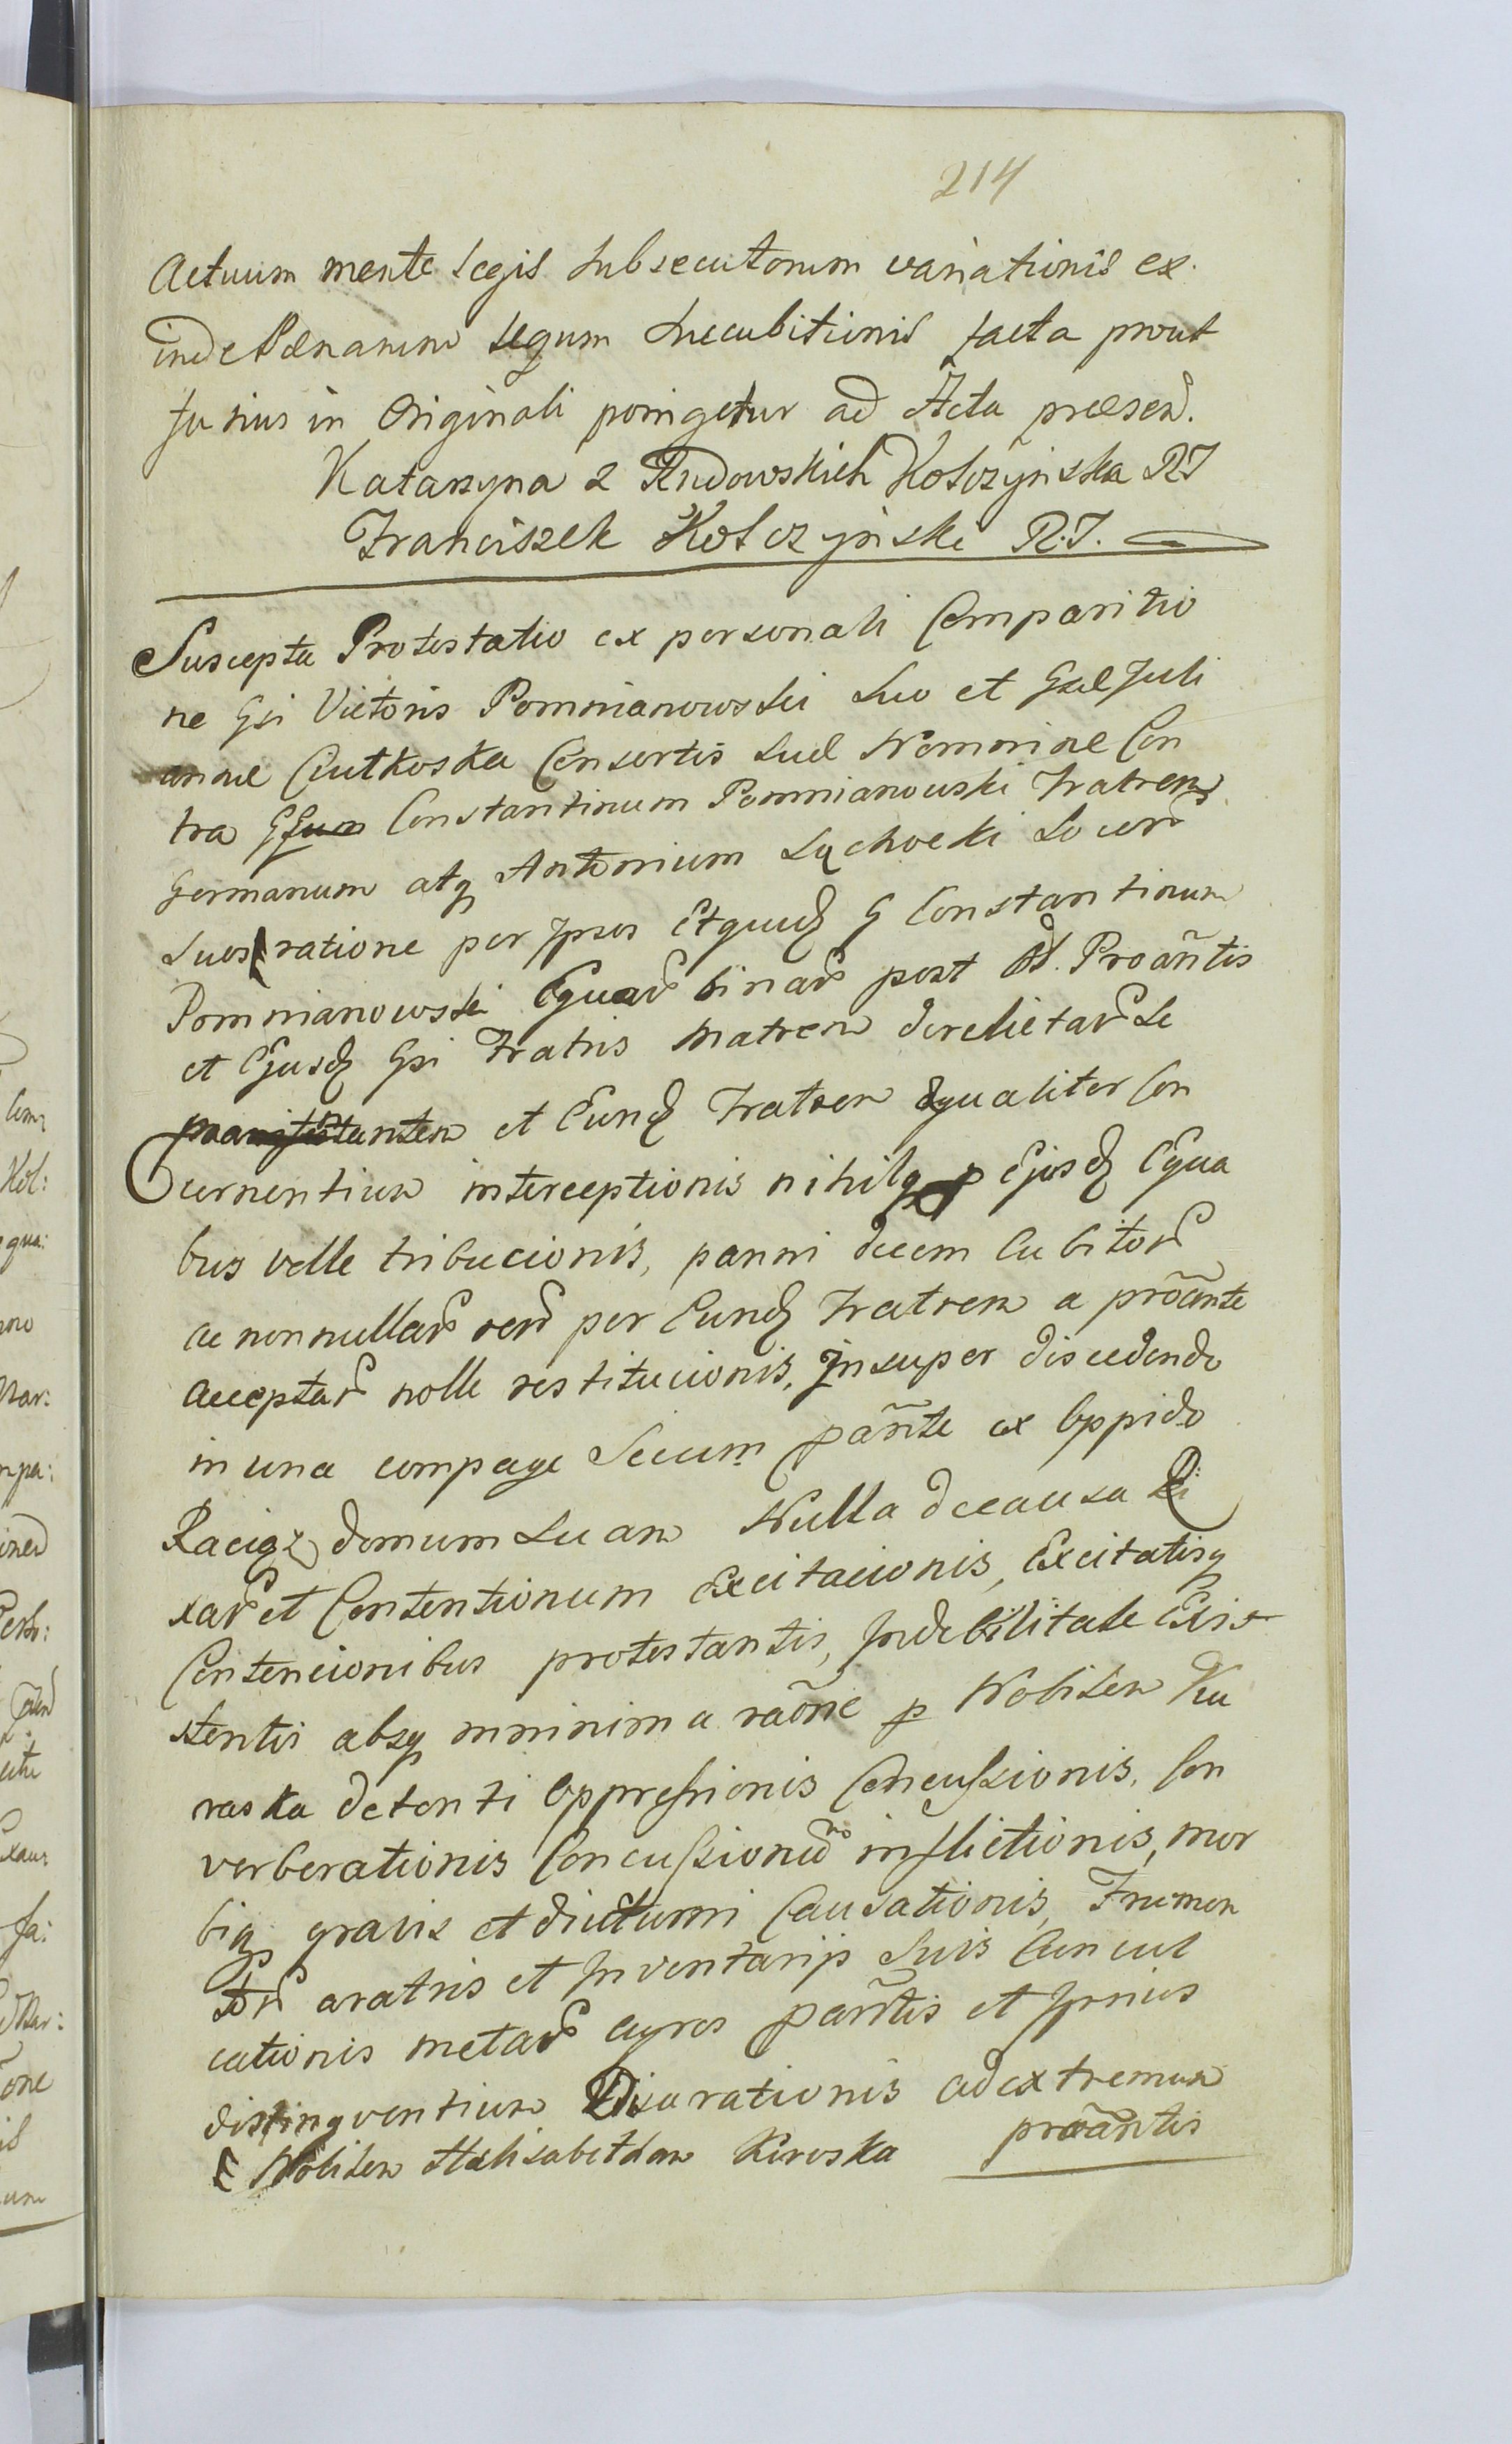 214
Actuum mente Legis subsecutorum variationis ex
inde Pænarum Legum succubitionis facta prout
fusius in Originali porrigetur ad Acta præsen.
Katarzyna z Rudowskich Kołczyńska R.J
Franciszek Kołczyński R.J.
Suscepta Protestatio ex personali Comparitio
ne Gsi Victoris Pomnianowski suo et Gsæ Juli
annæ Ciutkoska Consortis suæ Nomnine Con
tra Constantinum Pomnianowski Fratrem
Germanum atq Antonium Ląchocki Socer
suos ratione per Ipsos Etquid G Constantinum
Pomnianowski Equar binar post Proãntis
et Ejusd Gsi Fratris Matrem derelictar se
et Eund Fratrem æqualiter Con
cernentium interceptionis nihilq p Ejusd Equa
bus velle tribucionis, panni decem Cubitor
ac nonnullar rer per Eund Fratrem a proãnte
acceptar nolle restitucionis, Insuper discedendo
in una compage Secum pãnte ex Oppido
Raciąz domum suam Nulla de causa Ri
xar et Contentionum Excitacionis, Excitatisq
Contencionibus protestantis, In debilitate Exis
stentis absq mninima raõne p Nobilem Ku
raska detenti Oppressionis Concussionis, Con
verberationis Concussionu inflictionis, mor
biq gravis et diuturni Causationis, Frumen
tor aratris et Inventarijs suis Concul
cationis metar agros pãntis et Ipsius
distingventium Disarationis ad extremum
Nobilem Helisabetham Kiroska proãntis